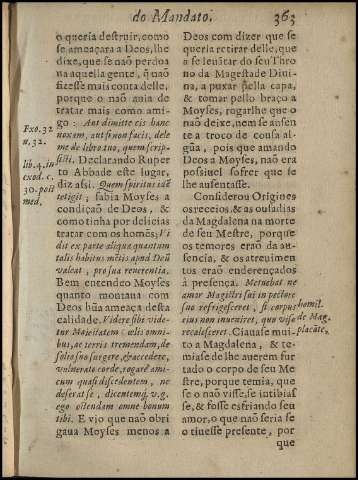 do Mandato. 363
o queria destruir, como
se ameaçara a Deos, lhe
dixe, que se naõ perdoa
na aquella gente, q̃ naõ
fizesse mais conta delle,
porque o naõ auia de
tratar mais como ami-
go: Aut dimitte eis hanc
noxam, aut si non facis, dele
me de libro tuo, quem scrip-
sisti. Declarando Ruper
to Abbade este lugar,
diz assi. Quem spiritus id
tetigit, sabia Moyses a
condiçaõ de Deos, &
como tinha por delicias
tratar com os homẽs; Vi
dit ex parte aliqua quantum
talis habitus mẽtis apud Deũ
valeat, pro sua reuerentia.
Bem entendeo Moyses
quanto montaua com
Deos hũa ameaça desta
calidade. Videre sibi vide
tur Maiestatem cælis omni-
bus, ac terris tremendam, de
solio suo surgere, & accedere,
vulnerato corde, rogare ami-
cum quasi discedentem, ne
deserat se, dicentemq́; v.g.
ego ostendam omne bonum
tibi. E vio que naõ obri
gaua Moyses menos a
Exo. 32
n. 32.
lib. 4. in
exod. c.
30. post
med.
Deos com dizer que se
queria retirar delle, que
a se leuãtar do seu Thro
no da Magestade Diui-
na, a puxar pella capa,
& tomar pello braço a
Moyses, rogarlhe que o
naõ deixe, nem se ausen
te a troco de cousa al-
gũa, pois que amando
Deos a Moyses, naõ era
possiuel sofrer que se
lhe ausentasse.
Considerou Origines
os receios, & as ousadias
da Magdalena na morte
de seu Mestre, porque
os temores eraõ da au-
sencia, & os atreuimen
tos eraõ endereçados
á presença. Metuebat ne
amor Magistri sui in pectore
suo refrigesceret, si corpus
eius non inueniret, quo viso
recalesceret. Ciauase mui-
to a Magdalena, & te-
miase de lhe auerem fur
tado o corpo de seu Me
stre, porque temia, que
se o naõ visse, se intibias
se, & fosse esfriando seu
amor, o que naõ seria se
o tiuesse presente, por
que
homil.
de Mag.